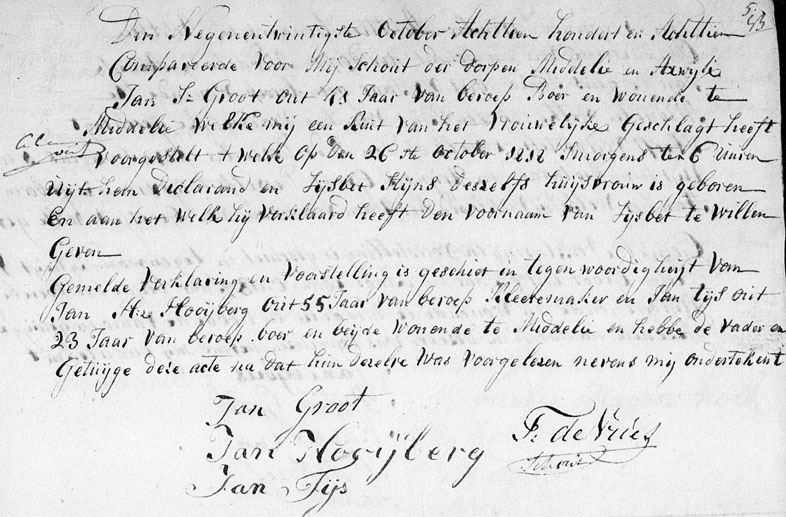 Den Negenentwintigste October Achttien hondert en Achttien
Compareerde voor Mij Schout der dorpen Middelie en Axwijk
Jan Sz Groot out 43 Jaar van beroep Boer en wonende te
Middelie welke mij een kint van het vrouwelijke Geschlagt heeft
voorgestelt + welk op den 26 ste October 1818 Smorgens te 6 Uuren
uijt hem Declarand en Lijsbet Klijns deszelfs huijsvrouw is geboren
En aan het welk hij verklaard heeft den voornaam van Lijsbet te willen
Geven
Gemelde verklaring en voorstelling is geschiet in tegenwoordigheijt van
Jan Hz Hooijberg out 55 Jaar van beroep kleeremaker en Jan tijs out
23 Jaar van beroep boer en beijde wonende te Middelie en hebbe de vader en
Getuijge deze acte na dat hun dezelve was voorgelezen nevens mij ondertekent
Jan Groot
Jan Hooijberg
F: de Vries
Schout
Jan Tijs